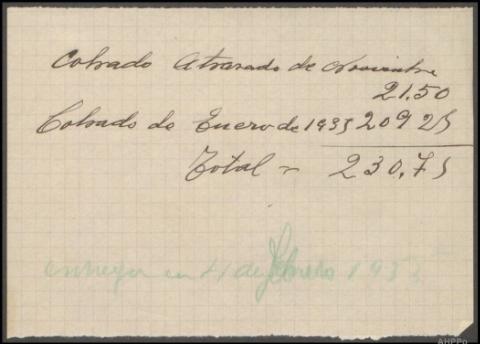 Cobrado Atrasado de Noviembre
21.50
Cobrado de Enero de 1935 209 25
Total = 230,75
en 4 de Febrero 193
AHPPo